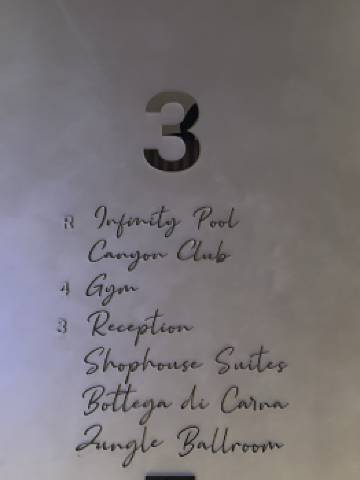 3
R Infinity Pool
Canyon Club
4 Gym
3 Reception
Shophouse Suites
Bottega di Carna
Jungle Ballroom